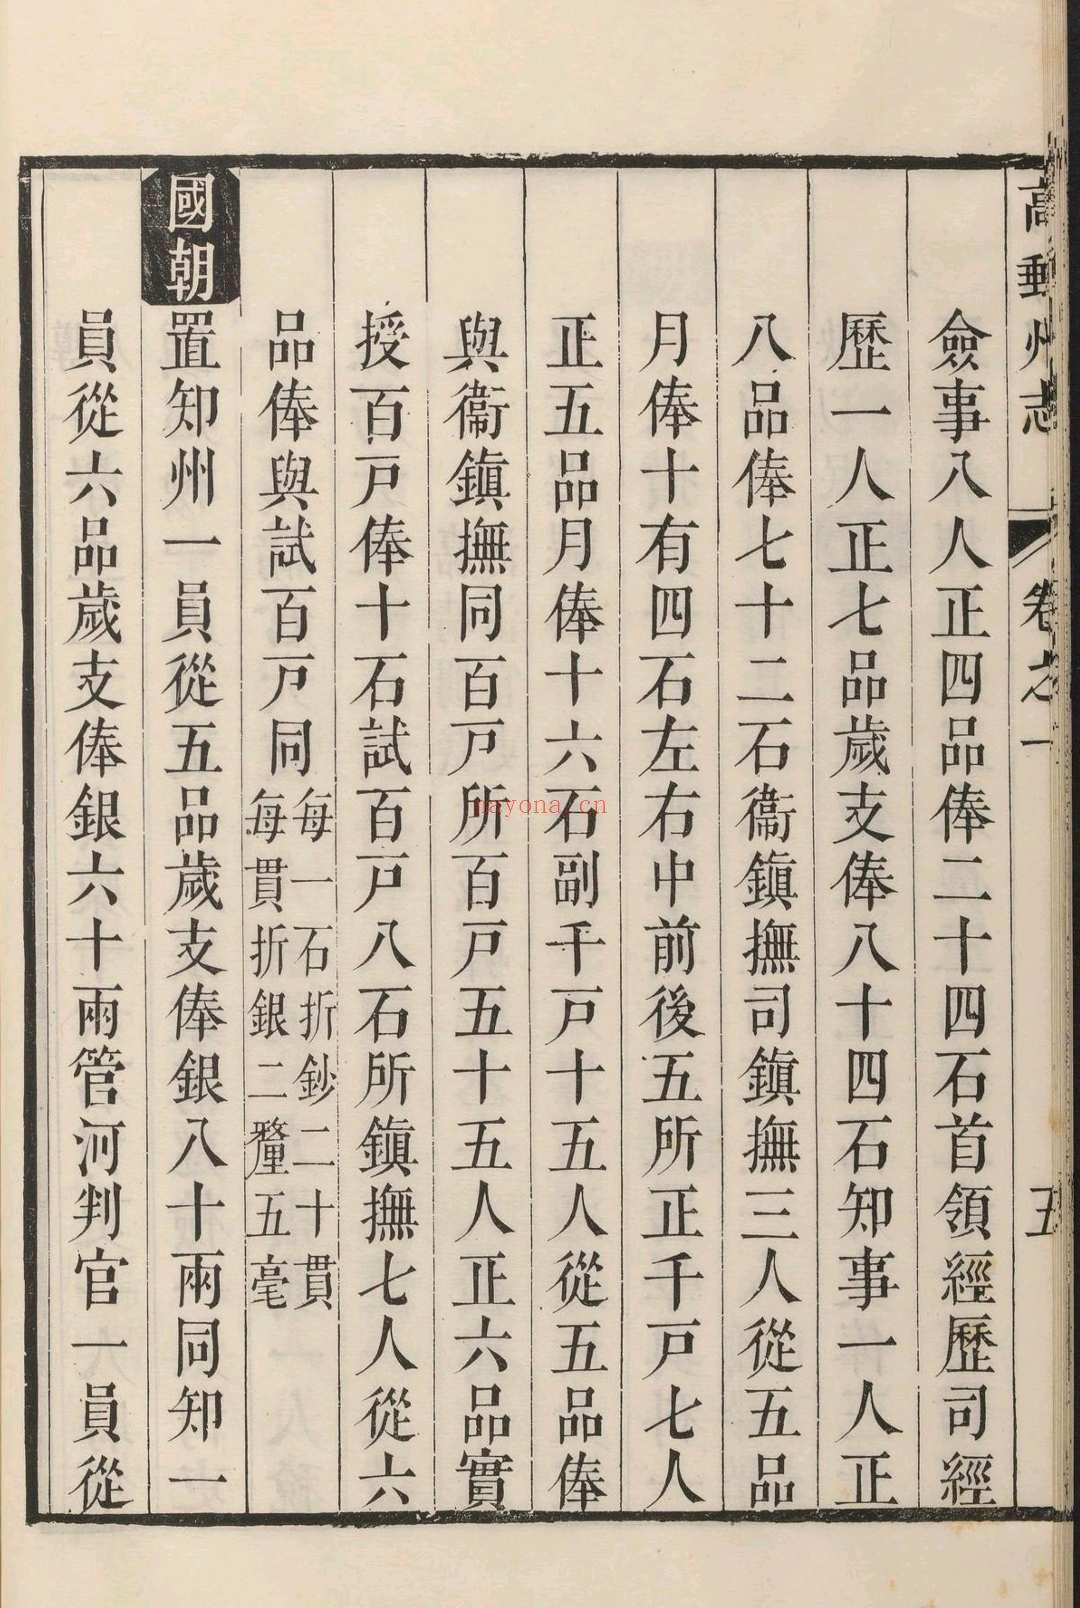 高郵州志 卷之一 五
僉事八人正四品俸二十四石首領經歷司經
歷一人正七品歲支俸八十四石知事一人正
八品俸七十二石衞鎮撫司鎮撫三人從五品
月俸十有四石左右中前後五所正千戸七人
正五品月俸十六石副千戸十五人從五品俸
與衞鎮撫同百戸所百戸五十五人正六品實
授百戸俸十石試百戸八石所鎮撫七人從六
品俸與試百戸同每一石折鈔二十貫
每貫折銀二釐五毫
國朝置知州一員從五品歲支俸銀八十兩同知一
員從六品歲支俸銀六十兩管河判官一員從
nayona.cn